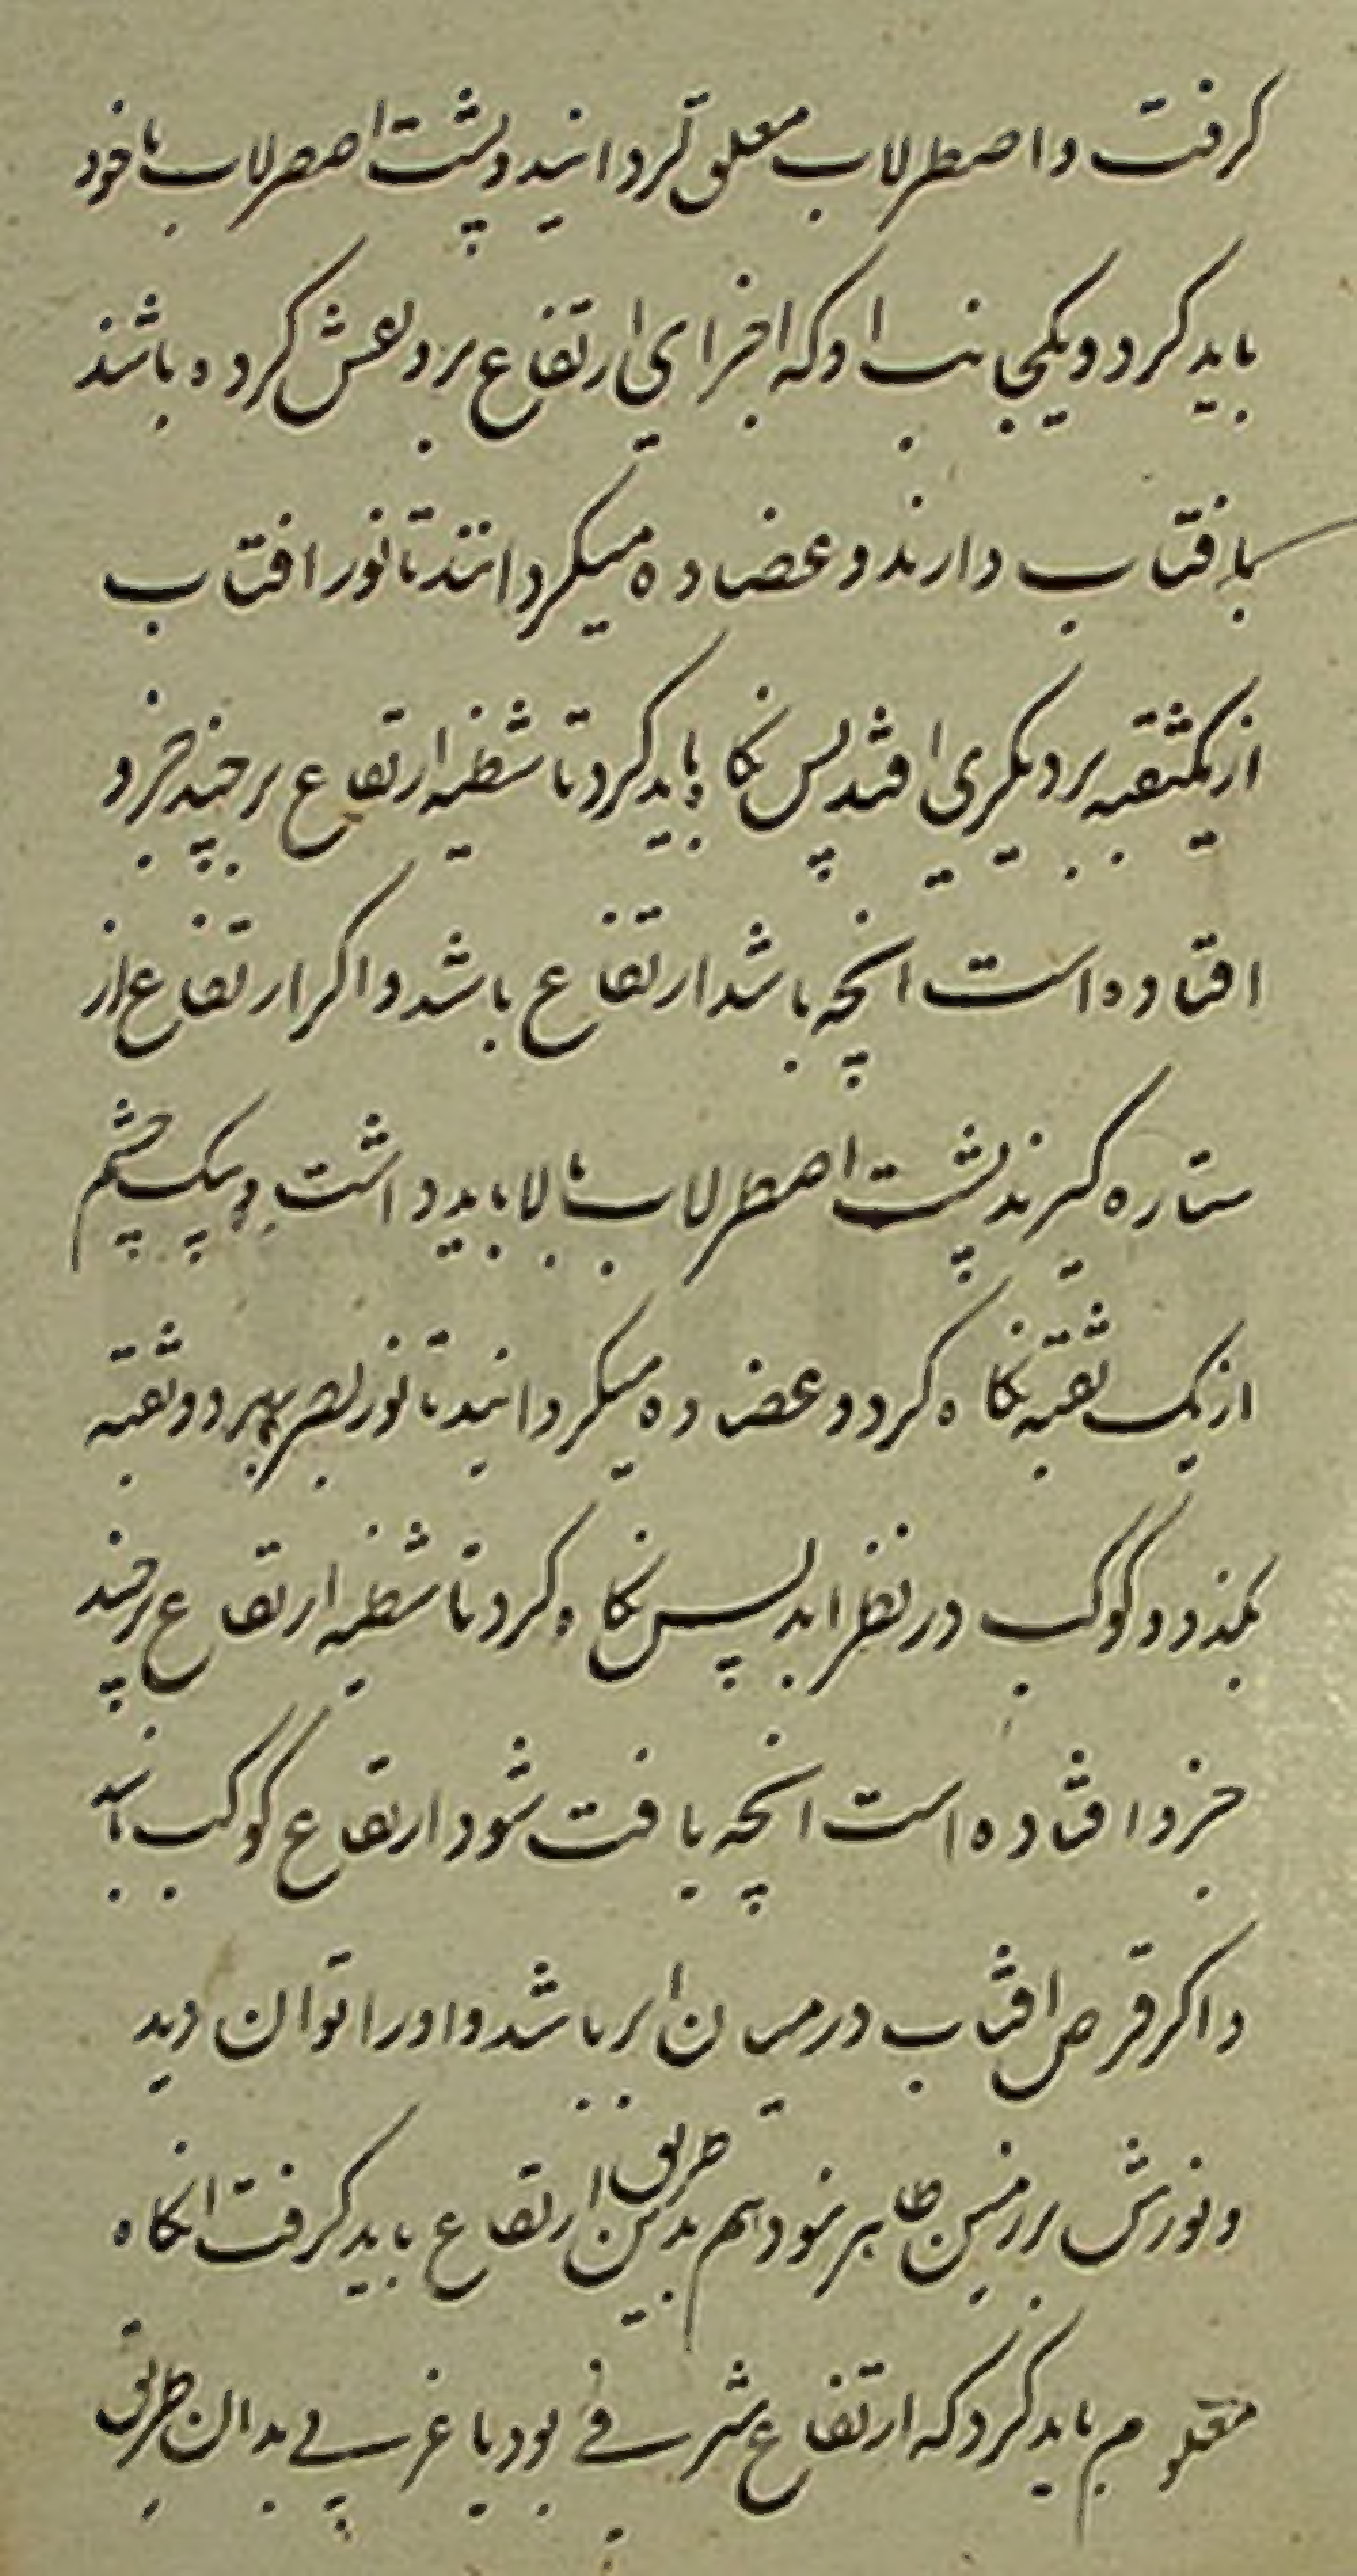 کرفت و اصطرلاب معلق کردانید و پشت اصطرلاب با خود
باید کرد و یکجانب او که اجزای ارتفاع برو نقش کرده باشند
بافتاب دارند و عضاده میکردانند تا نور افتاب
از یکثقبه بر دیکری افتد پس نکاه باید کرد تا شظیه ارتفاع بر چند جزو
افتاده است انچه باشد ارتفاع باشد و اکر ارتفاع از
ستاره کیرند پشت اصطرلاب بالا باید داشت و بیک چشم
از یک ثقبه نکاه کرد و عضاده میکردانید تا نور بصر بهر دو ثقبه
بکذرد و کوکب در نظر اید پس نکاه کرد تا شظیه ارتفاع بر چند
جزو افتاده است انچه یافت شود ارتفاع کوکب باشد
و اکر قرص افتاب در میان ابر باشد و او را توان دید
و نورش بر زمین ظاهر نبود هم بدین طریق ارتفاع باید کرفت انکاه
معلوم باید کرد که ارتفاع شرقی بود یا غربی بدان طریق